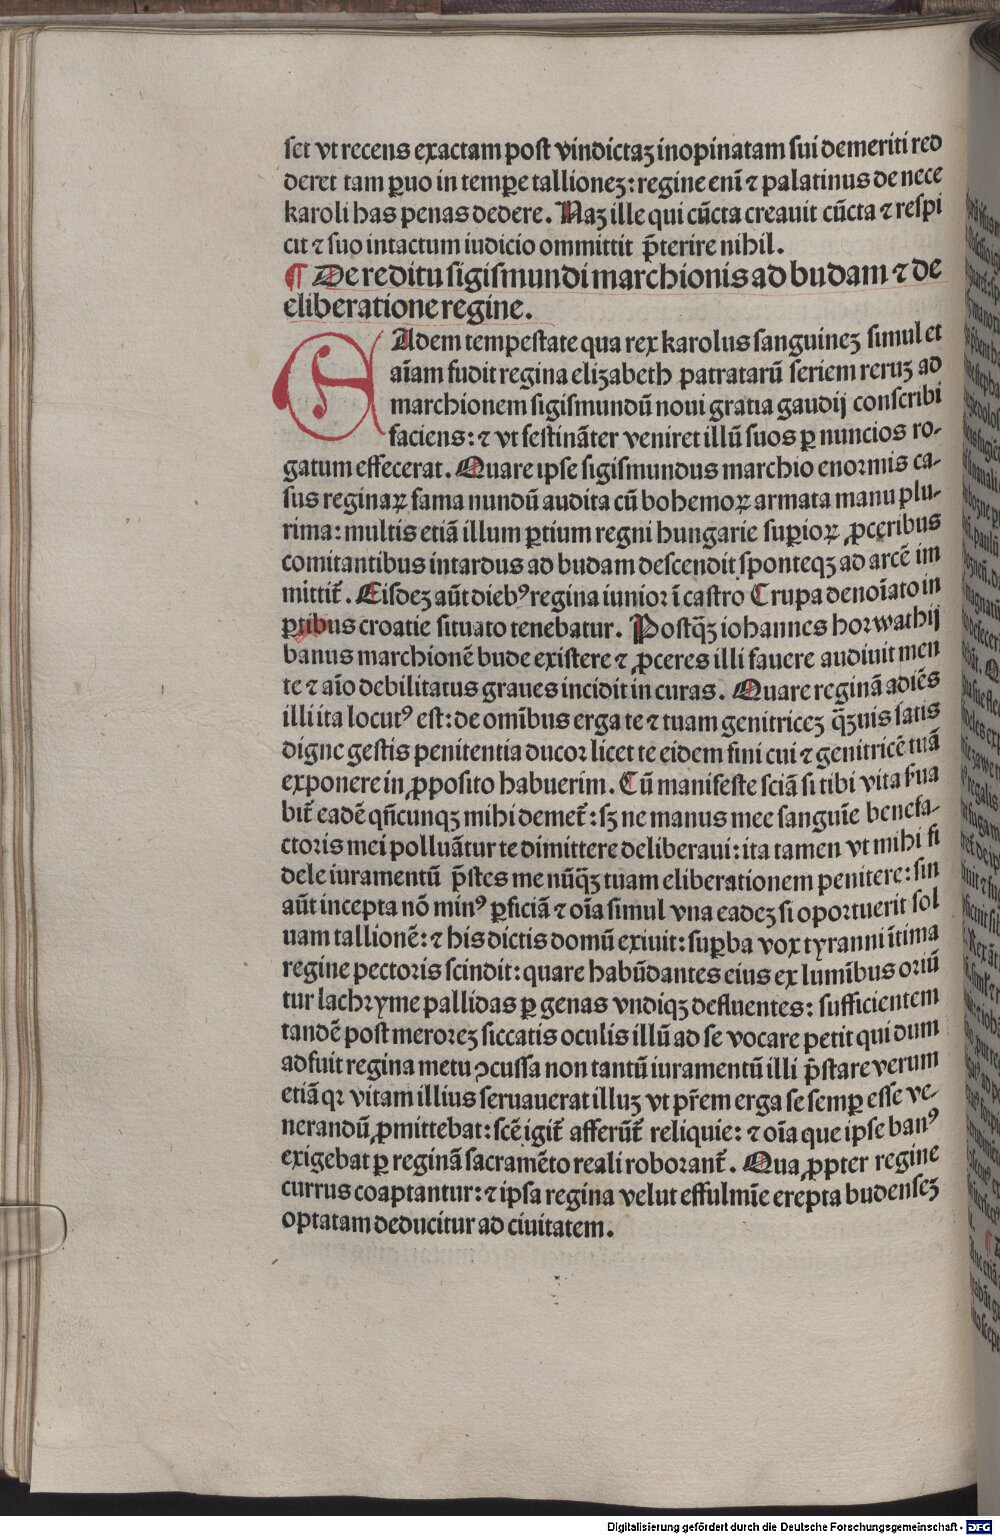 set vt recens exactam post vindictaꝫ inopinatam sui demeriti red
deret tam ꝑuo in temꝑe tallioneꝫ: regine enī ⁊ palatinus de nece
karoli has penas dedere. Naꝫ ille qui cūcta creauit cūcta ⁊ respi
cit ⁊ suo intactum iudicio ommittit p̄terire nihil.
¶ De reditu sigismundi marchionis ad budam ⁊ de
eliberatione regine.
EAdem tempestate qua rex karolus sanguineꝫ simul et
aīam fudit regina elizabeth patratarū seriem reruꝫ ad
marchionem sigismundū noui gratia gaudij conscribi
faciens: ⁊ vt festināter veniret illū suos ꝑ nuncios ro-
gatum effecerat. Quare ipse sigismundus marchio enormis ca-
sus reginaꝝ fama nundū audita cū bohemoꝝ armata manu plu-
rima: multis etiā illum ꝑtium regni hungarie suꝑioꝝ ꝓceribus
comitantibus intardus ad budam descendit sponteqꝫ ad arcē im
mittit̄. Eisdeꝫ aūt diebꝰ regina iunior ī castro Crupa denoīato in
ꝑtibus croatie situato tenebatur. Postq̄ꝫ iohannes horwathij
banus marchionē bude existere ⁊ ꝓceres illi fauere audiuit men
te ⁊ aīo debilitatus graues incidit in curas. Quare reginā adiēs
illi ita locutꝰ est: de omībus erga te ⁊ tuam genitriceꝫ q̄ꝫuis satis
digne gestis penitentia ducor licet te eidem fini cui ⁊ genitricē tuā
exponere in ꝓposito habuerim. Cū manifeste sciā si tibi vita sua
bit̄ eadē qn̄cunqꝫ mihi demet̄: sꝫ ne manus mee sanguīe benefa-
ctoris mei polluātur te dimittere deliberaui: ita tamen vt mihi fi
dele iuramentū p̄stes me nūq̄ꝫ tuam eliberationem penitere: sin
aūt incepta nō minꝰ ꝑficiā ⁊ oīa simul vna eadeꝫ si oportuerit sol
uam tallionē: ⁊ his dictis domū exiuit: suꝑba vox tyranni ītima
regine pectoris scindit: quare habūdantes eius ex lumībus oriū
tur lachryme pallidas ꝑ genas vndiqꝫ defluentes: sufficientem
tandē post meroreꝫ siccatis oculis illū ad se vocare petit qui dum
adfuit regina metu ꝯcussa non tantū iuramentū illi p̄stare verum
etiā qꝛ vitam illius seruauerat illuꝫ vt pr̄em erga se semꝑ esse ve-
nerandū ꝓmittebat: scē igit̄ afferūt̄ reliquie: ⁊ oīa que ipse banꝰ
exigebat ꝑ reginā sacramēto reali roborant̄. Qua ꝓpter regine
currus coaptantur: ⁊ ipsa regina velut effulmīe erepta budenseꝫ
optatam deducitur ad ciuitatem.
Digitalisierung gefördert durch die Deutsche Forschungsgemeinschaft - DFG